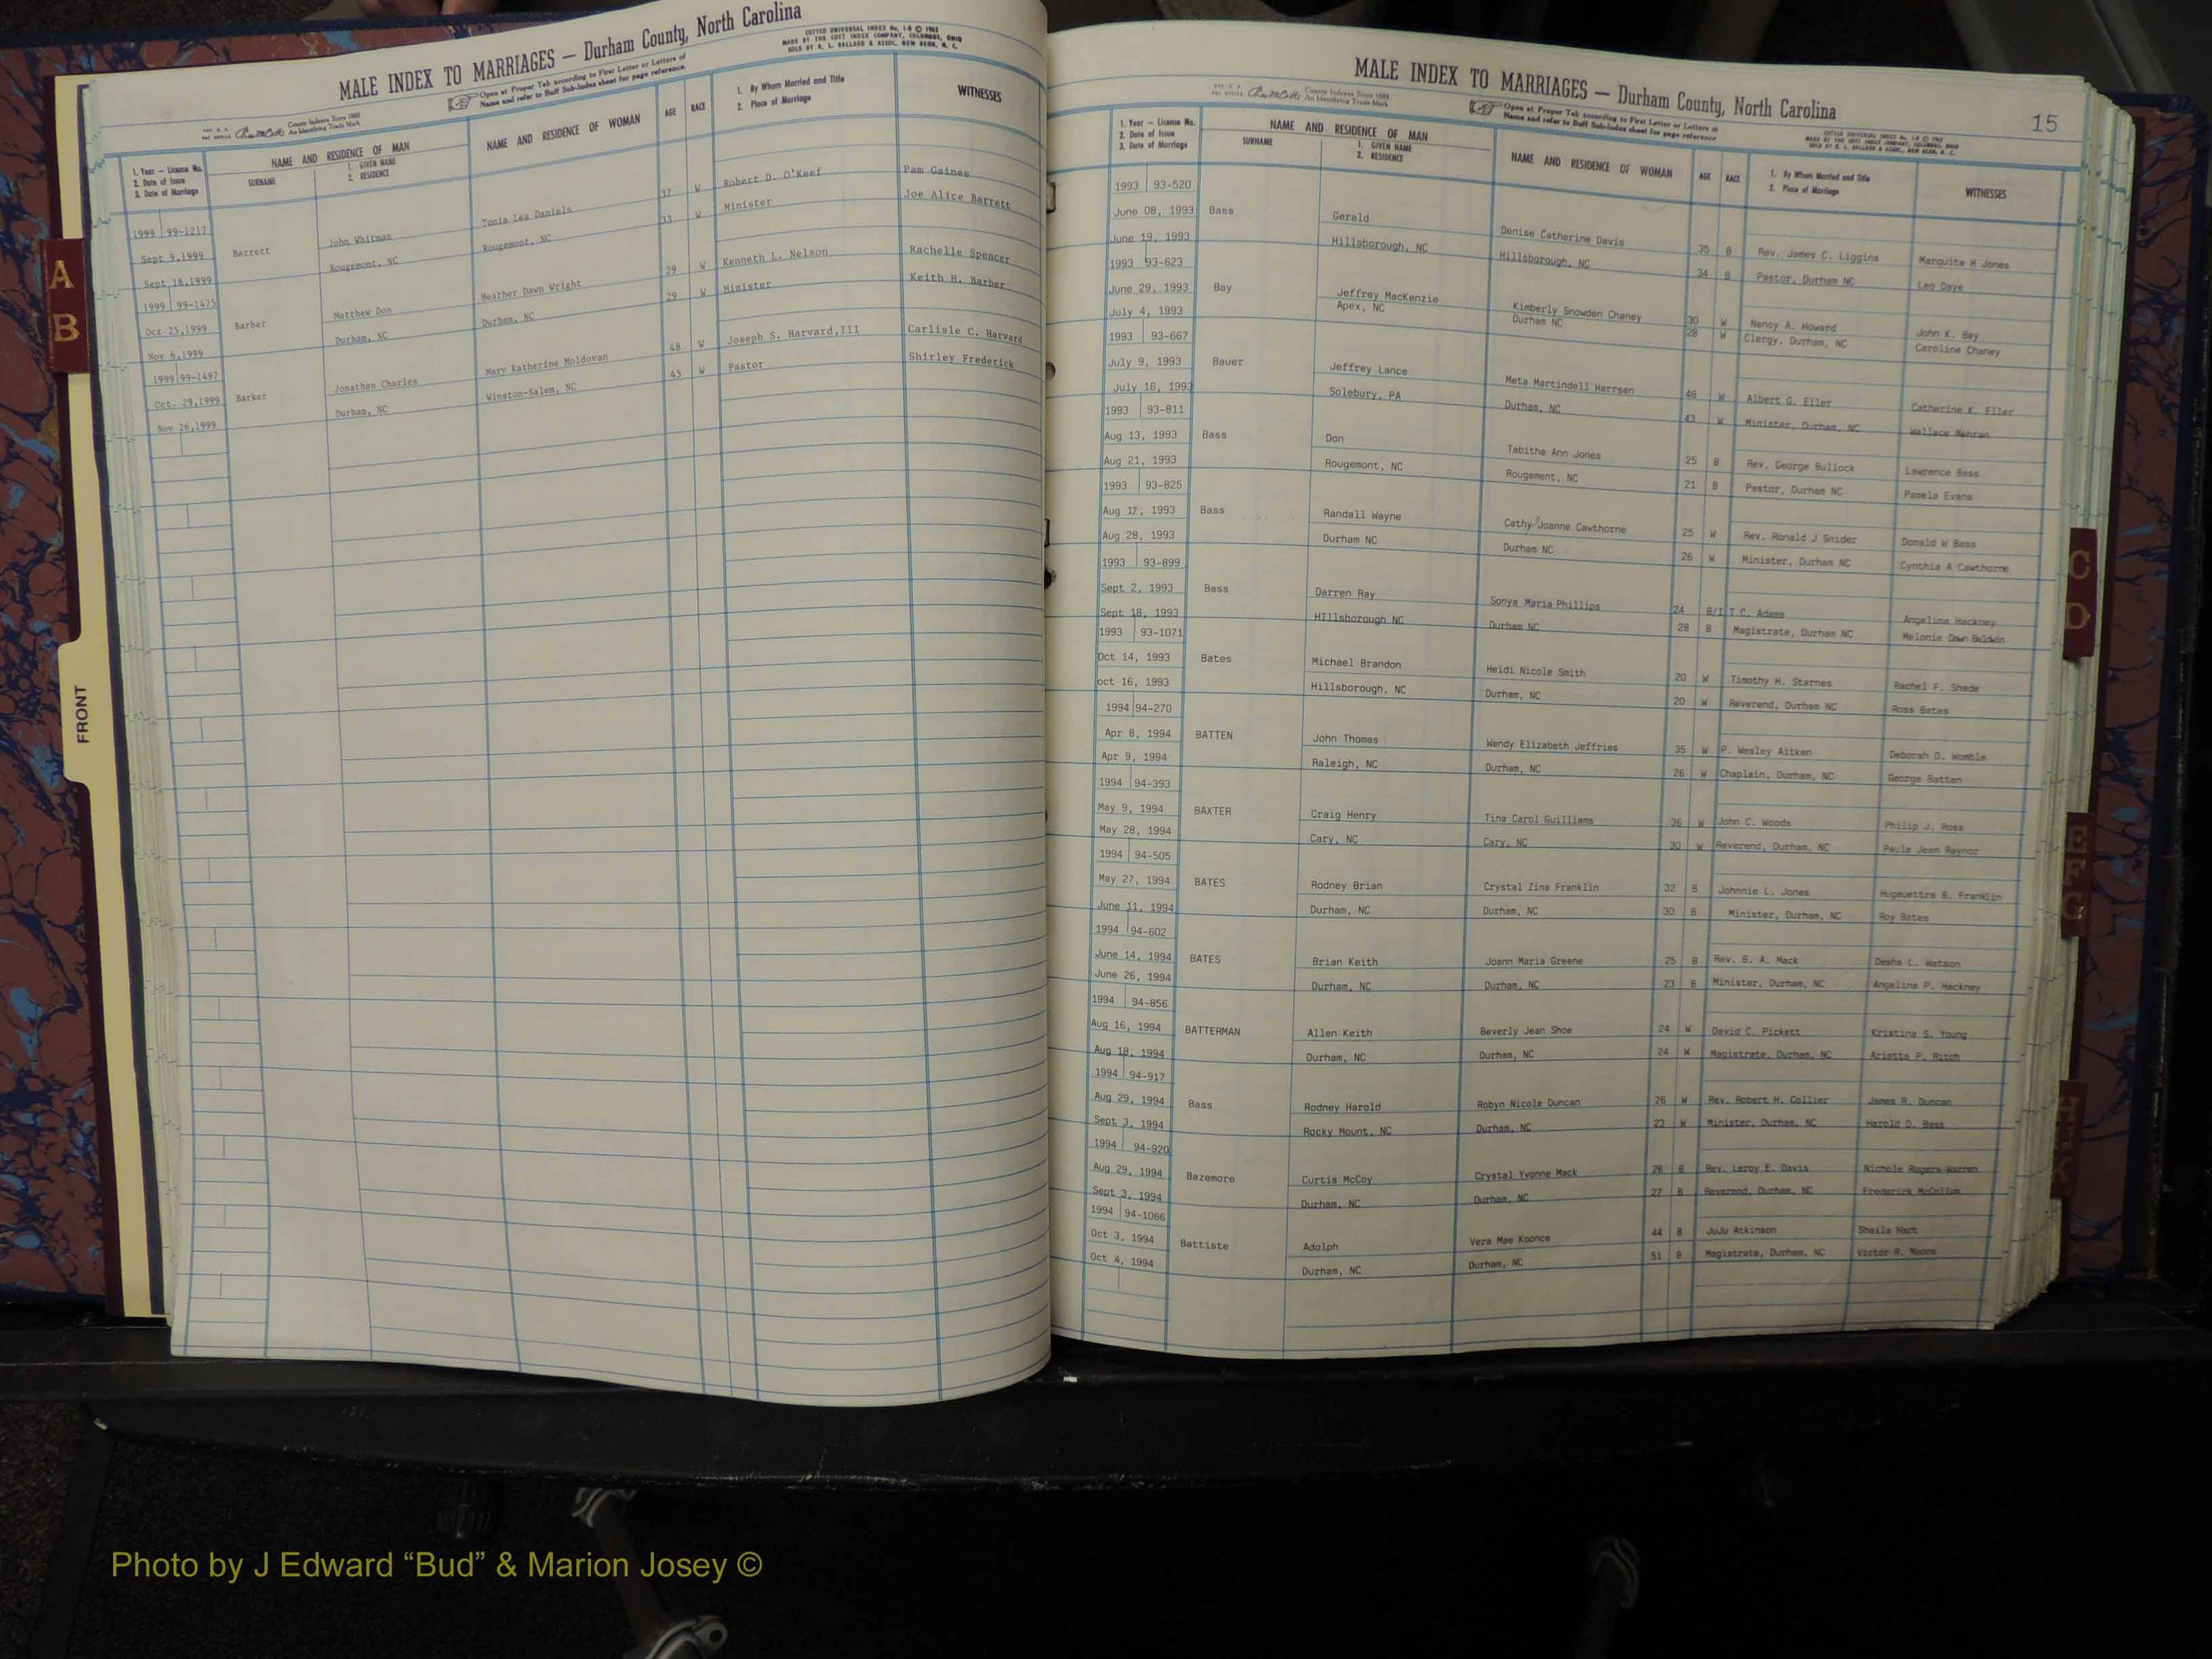 MALE INDEX TO MARRIAGES — Durham County, North Carolina
COTTCO UNIVERSAL INDEX No. 1-B © 1962
MADE BY THE COTT INDEX COMPANY, COLUMBUS, OHIO
SOLD BY R. L. BALLARD & ASSOC. NEW BERN, N. C.
County Indexes Since 1888
An Identifying Trade Mark
Open at Proper Tab according to First Letter or Letters of
Name and refer to Buff Sub-Index sheet for page reference.
1. Year — License No.
2. Date of Issue
3. Date of Marriage
NAME AND RESIDENCE OF MAN
SURNAME
1. GIVEN NAME
2. RESIDENCE
NAME AND RESIDENCE OF WOMAN
AGE
RACE
1. By Whom Married and Title
2. Place of Marriage
WITNESSES
1999 99-1217 Tonia Lea Daniels 37 W Robert D. O'Keef Pam Gaines
Sept 9,1999 Barrett John Whitman Rougemont, NC 33 W Minister Joe Alice Barrett
Sept 18,1999 Rougemont, NC
1999 99-1475 Heather Dawn Wright 29 W Kenneth L. Nelson Rachelle Spencer
Oct 25,1999 Barber Matthew Don Durham, NC 29 W Minister Keith H. Barber
Nov 6,1999 Durham, NC
1999 99-1497 Mary Katherine Moldovan 48 W Joseph S. Harvard,III Carlisle C. Harvard
Oct. 29,1999 Barker Jonathan Charles Winston-Salem, NC 45 W Pastor Shirley Frederick
Nov 26,1999 Durham, NC
A
B
FRONT
MALE INDEX TO MARRIAGES — Durham County, North Carolina
15
County Indexes Since 1888
An Identifying Trade Mark
Open at Proper Tab according to First Letter or Letters of
Name and refer to Buff Sub-Index sheet for page reference
COTTCO UNIVERSAL INDEX No. 1-B © 1962
MADE BY THE COTT INDEX COMPANY, COLUMBUS, OHIO
SOLD BY R. L. BALLARD & ASSOC. NEW BERN, N. C.
1. Year — License No.
2. Date of Issue
3. Date of Marriage
NAME AND RESIDENCE OF MAN
SURNAME
1. GIVEN NAME
2. RESIDENCE
NAME AND RESIDENCE OF WOMAN
AGE
RACE
1. By Whom Married and Title
2. Place of Marriage
WITNESSES
1993 93-520
June 08, 1993 Bass Gerald Denise Catherine Davis 35 B Rev. James C. Liggins Marquita H Jones
June 19, 1993 Hillsborough, NC Hillsborough, NC 34 B Pastor, Durham NC Leo Daye
1993 93-623
June 29, 1993 Bay Jeffrey MacKenzie Kimberly Snowden Chaney 30 W Nancy A. Howard John K. Bay
July 4, 1993 Apex, NC Durham NC 28 W Clergy, Durham, NC Caroline Chaney
1993 93-667
July 9, 1993 Bauer Jeffrey Lance Meta Martindell Harrsen 46 W Albert G. Eller Catherine K. Eller
July 16, 1993 Solebury, PA Durham, NC 43 W Minister, Durham, NC Wallace
1993 93-811
Aug 13, 1993 Bass Don Tabitha Ann Jones 25 B Rev. George Bullock Lawrence Bass
Aug 21, 1993 Rougemont, NC Rougemont, NC 21 B Pastor, Durham NC Pamela Evans
1993 93-825
Aug 17, 1993 Bass Randall Wayne Cathy Joanne Cawthorne 25 W Rev. Ronald J Snider Donald W Bass
Aug 28, 1993 Durham NC Durham NC 26 W Minister, Durham NC Cynthia A Cawthorne
1993 93-899
Sept 2, 1993 Bass Darren Ray Sonya Maria Phillips 24 B/I T C. Adams Angeline Hackney
Sept 18, 1993 HIllsborough NC Durham NC 28 B Magistrate, Durham NC Melonie Dawn Baldwin
1993 93-1071
Oct 14, 1993 Bates Michael Brandon Heidi Nicole Smith 20 W Timothy H. Starnes Rachel F. Shade
oct 16, 1993 Hillsborough, NC Durham, NC 20 W Reverend, Durham NC Ross Bates
1994 94-270
Apr 8, 1994 BATTEN John Thomas Wendy Elizabeth Jeffries 35 W P. Wesley Aitken Deborah D. Womble
Apr 9, 1994 Raleigh, NC Durham, NC 26 W Chaplain, Durham, NC George Batten
1994 94-393
May 9, 1994 BAXTER Craig Henry Tina Carol Guilliams 36 W John C. Woods Philip J. Ross
May 28, 1994 Cary, NC Cary, NC 30 W Reverend, Durham, NC Paula Jean Raynor
1994 94-505
May 27, 1994 BATES Rodney Brian Crystal Zina Franklin 32 B Johnnie L. Jones Hugeuettra B. Franklin
June 11, 1994 Durham, NC Durham, NC 30 B Minister, Durham, NC Roy Bates
1994 94-602
June 14, 1994 BATES Brian Keith Joann Maria Greene 25 B Rev. B. A. Mack Desha L. Watson
June 26, 1994 Durham, NC Durham, NC 23 B Minister, Durham, NC Angeline P. Hackney
1994 94-856
Aug 16, 1994 BATTERMAN Allen Keith Beverly Jean Shoe 24 W David C. Pickett Kristina S. Young
Aug 18, 1994 Durham, NC Durham, NC 24 W Magistrate, Durham, NC Arietta P. Ritch
1994 94-917
Aug 29, 1994 Bass Rodney Harold Robyn Nicole Duncan 26 W Rev. Robert H. Collier James R. Duncan
Sept 3, 1994 Rocky Mount, NC Durham, NC 23 W Minister, Durham, NC Harold D. Bass
1994 94-920
Aug 29, 1994 Bazemore Curtis McCoy Crystal Yvonne Mack 26 B Rev. Leroy E. Davis Nichole Rogers-Warren
Sept 3, 1994 Durham, NC Durham, NC 27 B Reverend, Durham, NC Frederick McCollum
1994 94-1066
Oct 3, 1994 Battiste Adolph Vera Mae Koonce 44 B JuJu Atkinson Sheila Hart
Oct 4, 1994 Durham, NC Durham, NC 51 B Magistrate, Durham, NC Victor R. Moore
C
D
Photo by J Edward “Bud” & Marion Josey ©